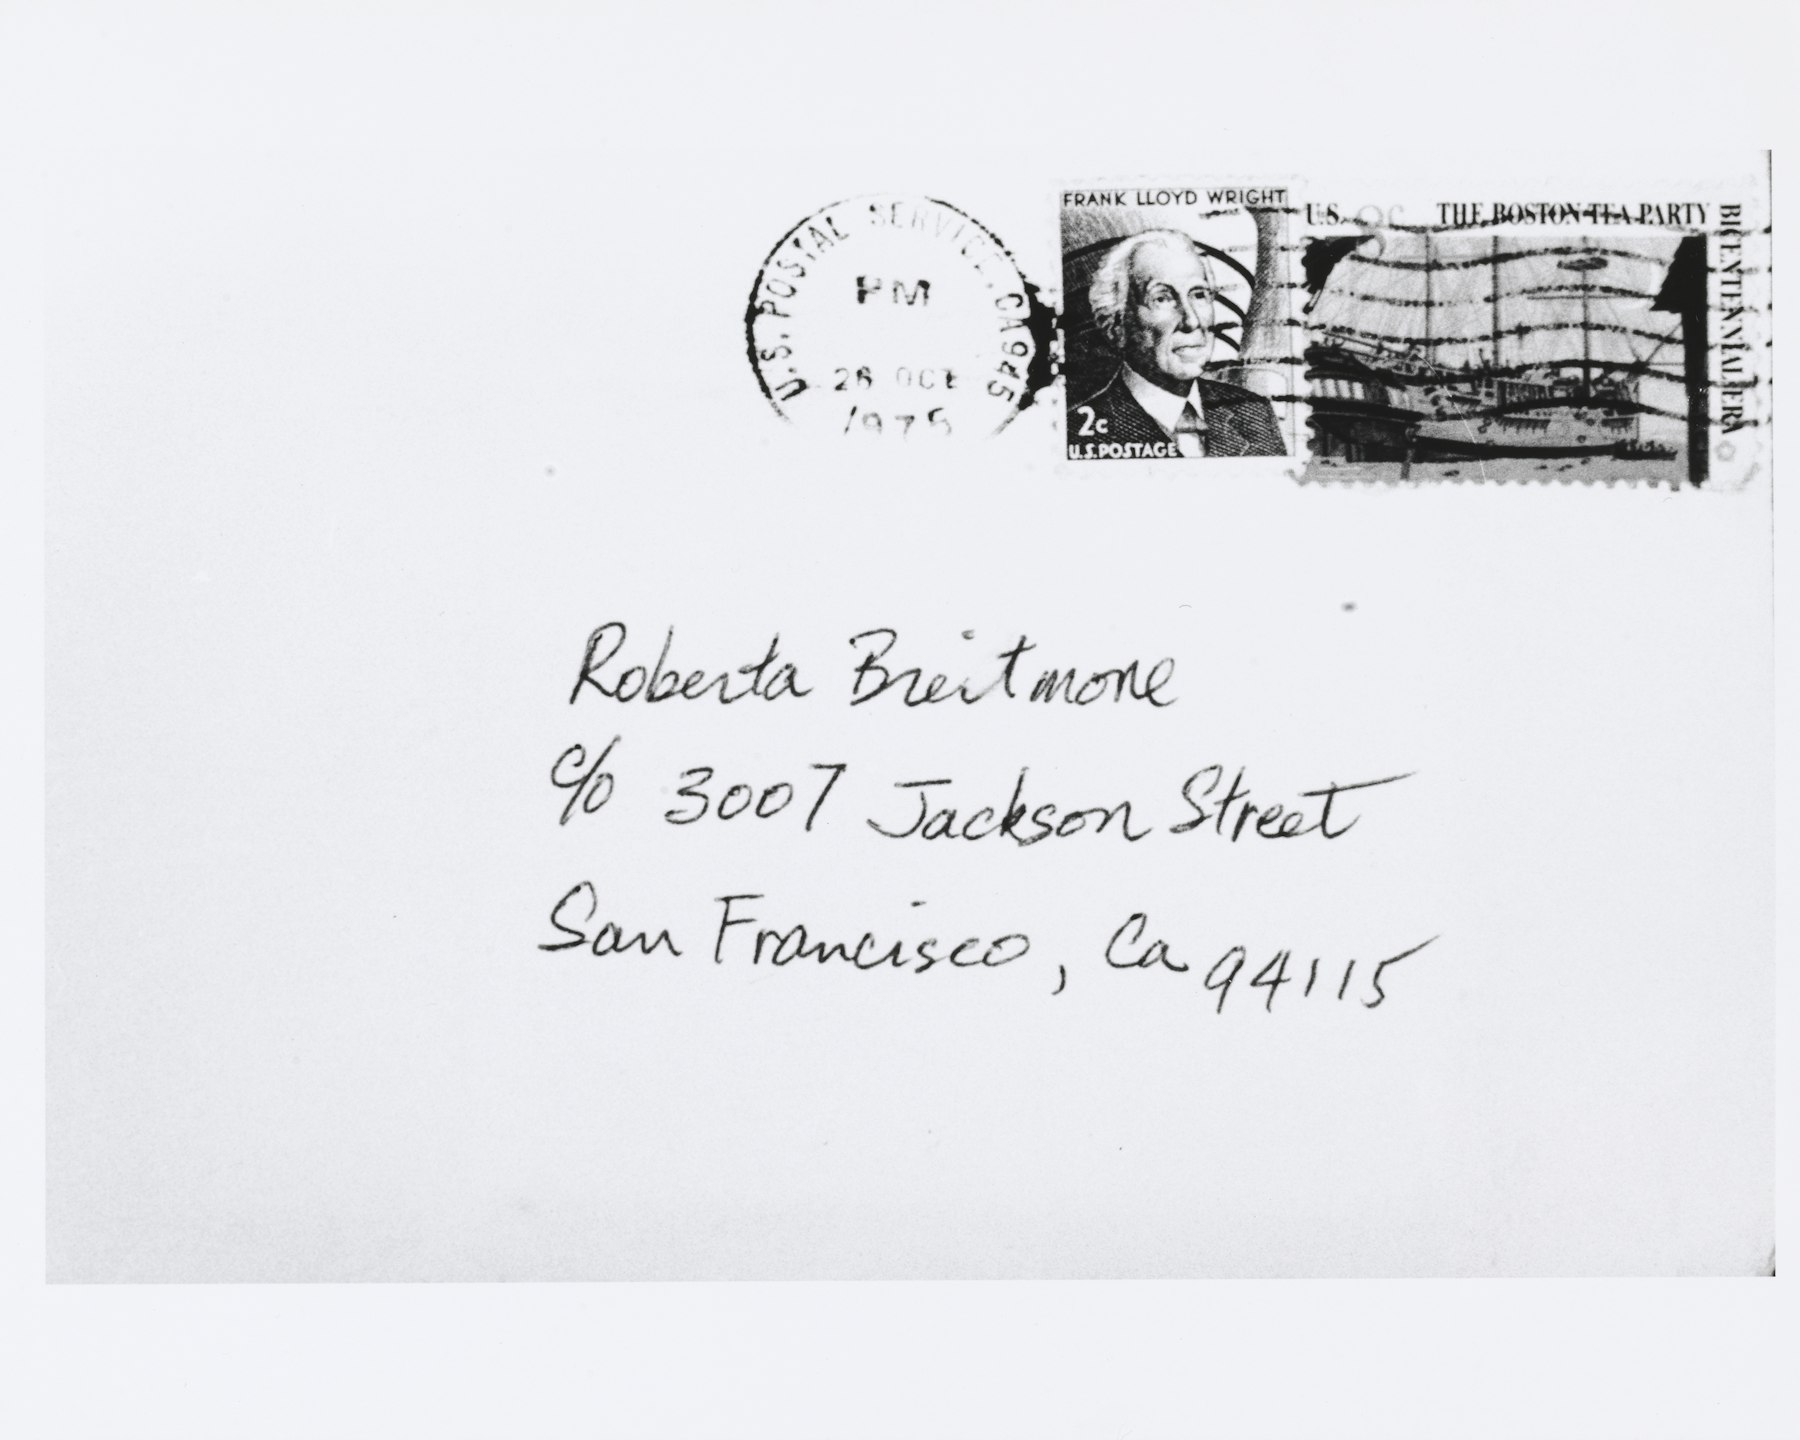 U.S. POSTAL SERVICE, CA 945
PM
1975
FRANK LLOYD WRIGHT
2c
U.S. POSTAGE
U.S.
THE BOSTON TEA PARTY
BICENTENNIAL ERA
Roberta Breitmore
c/o 3007 Jackson Street
San Francisco, Ca 94115